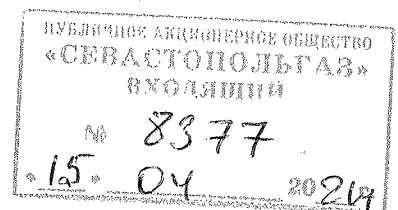 ПУБЛИЧНОЕ АКЦИОНЕРНОЕ ОБЩЕСТВО
«СЕВАСТОПОЛЬГАЗ»
ВХОДЯЩИЙ
№ 8377
«15» 04 2024г.